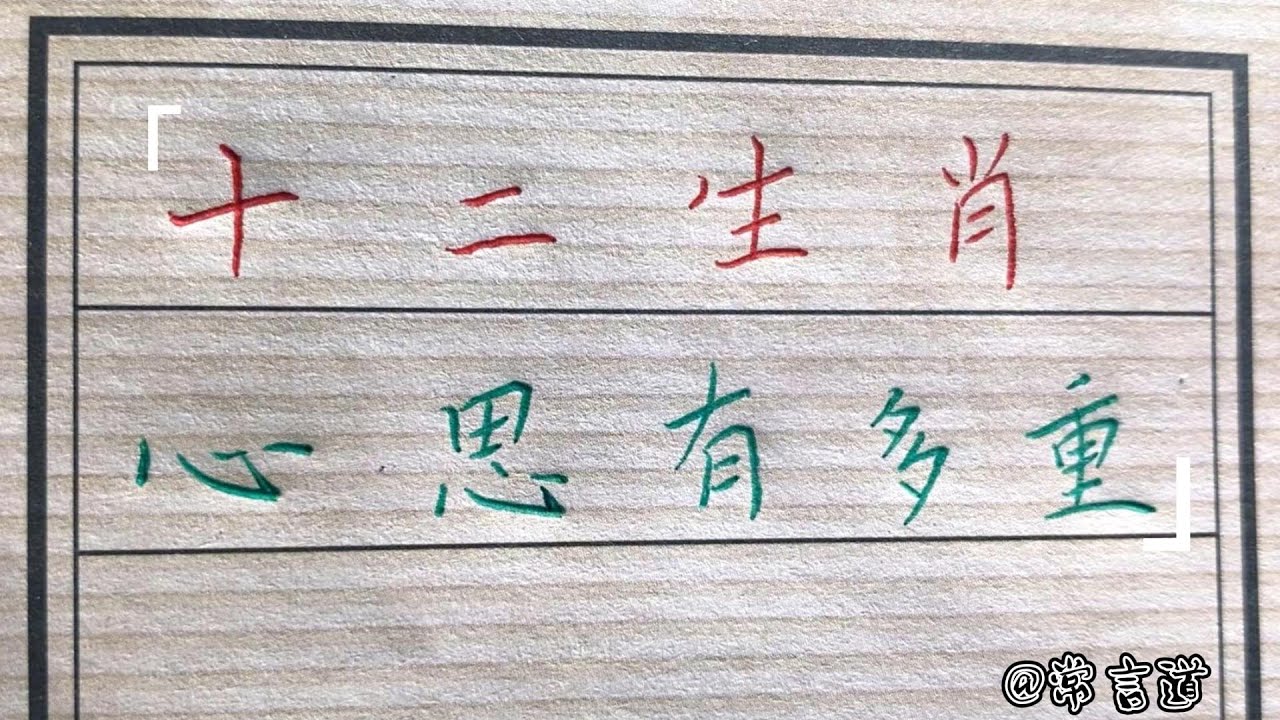 十二生肖
心思有多重
@常言道